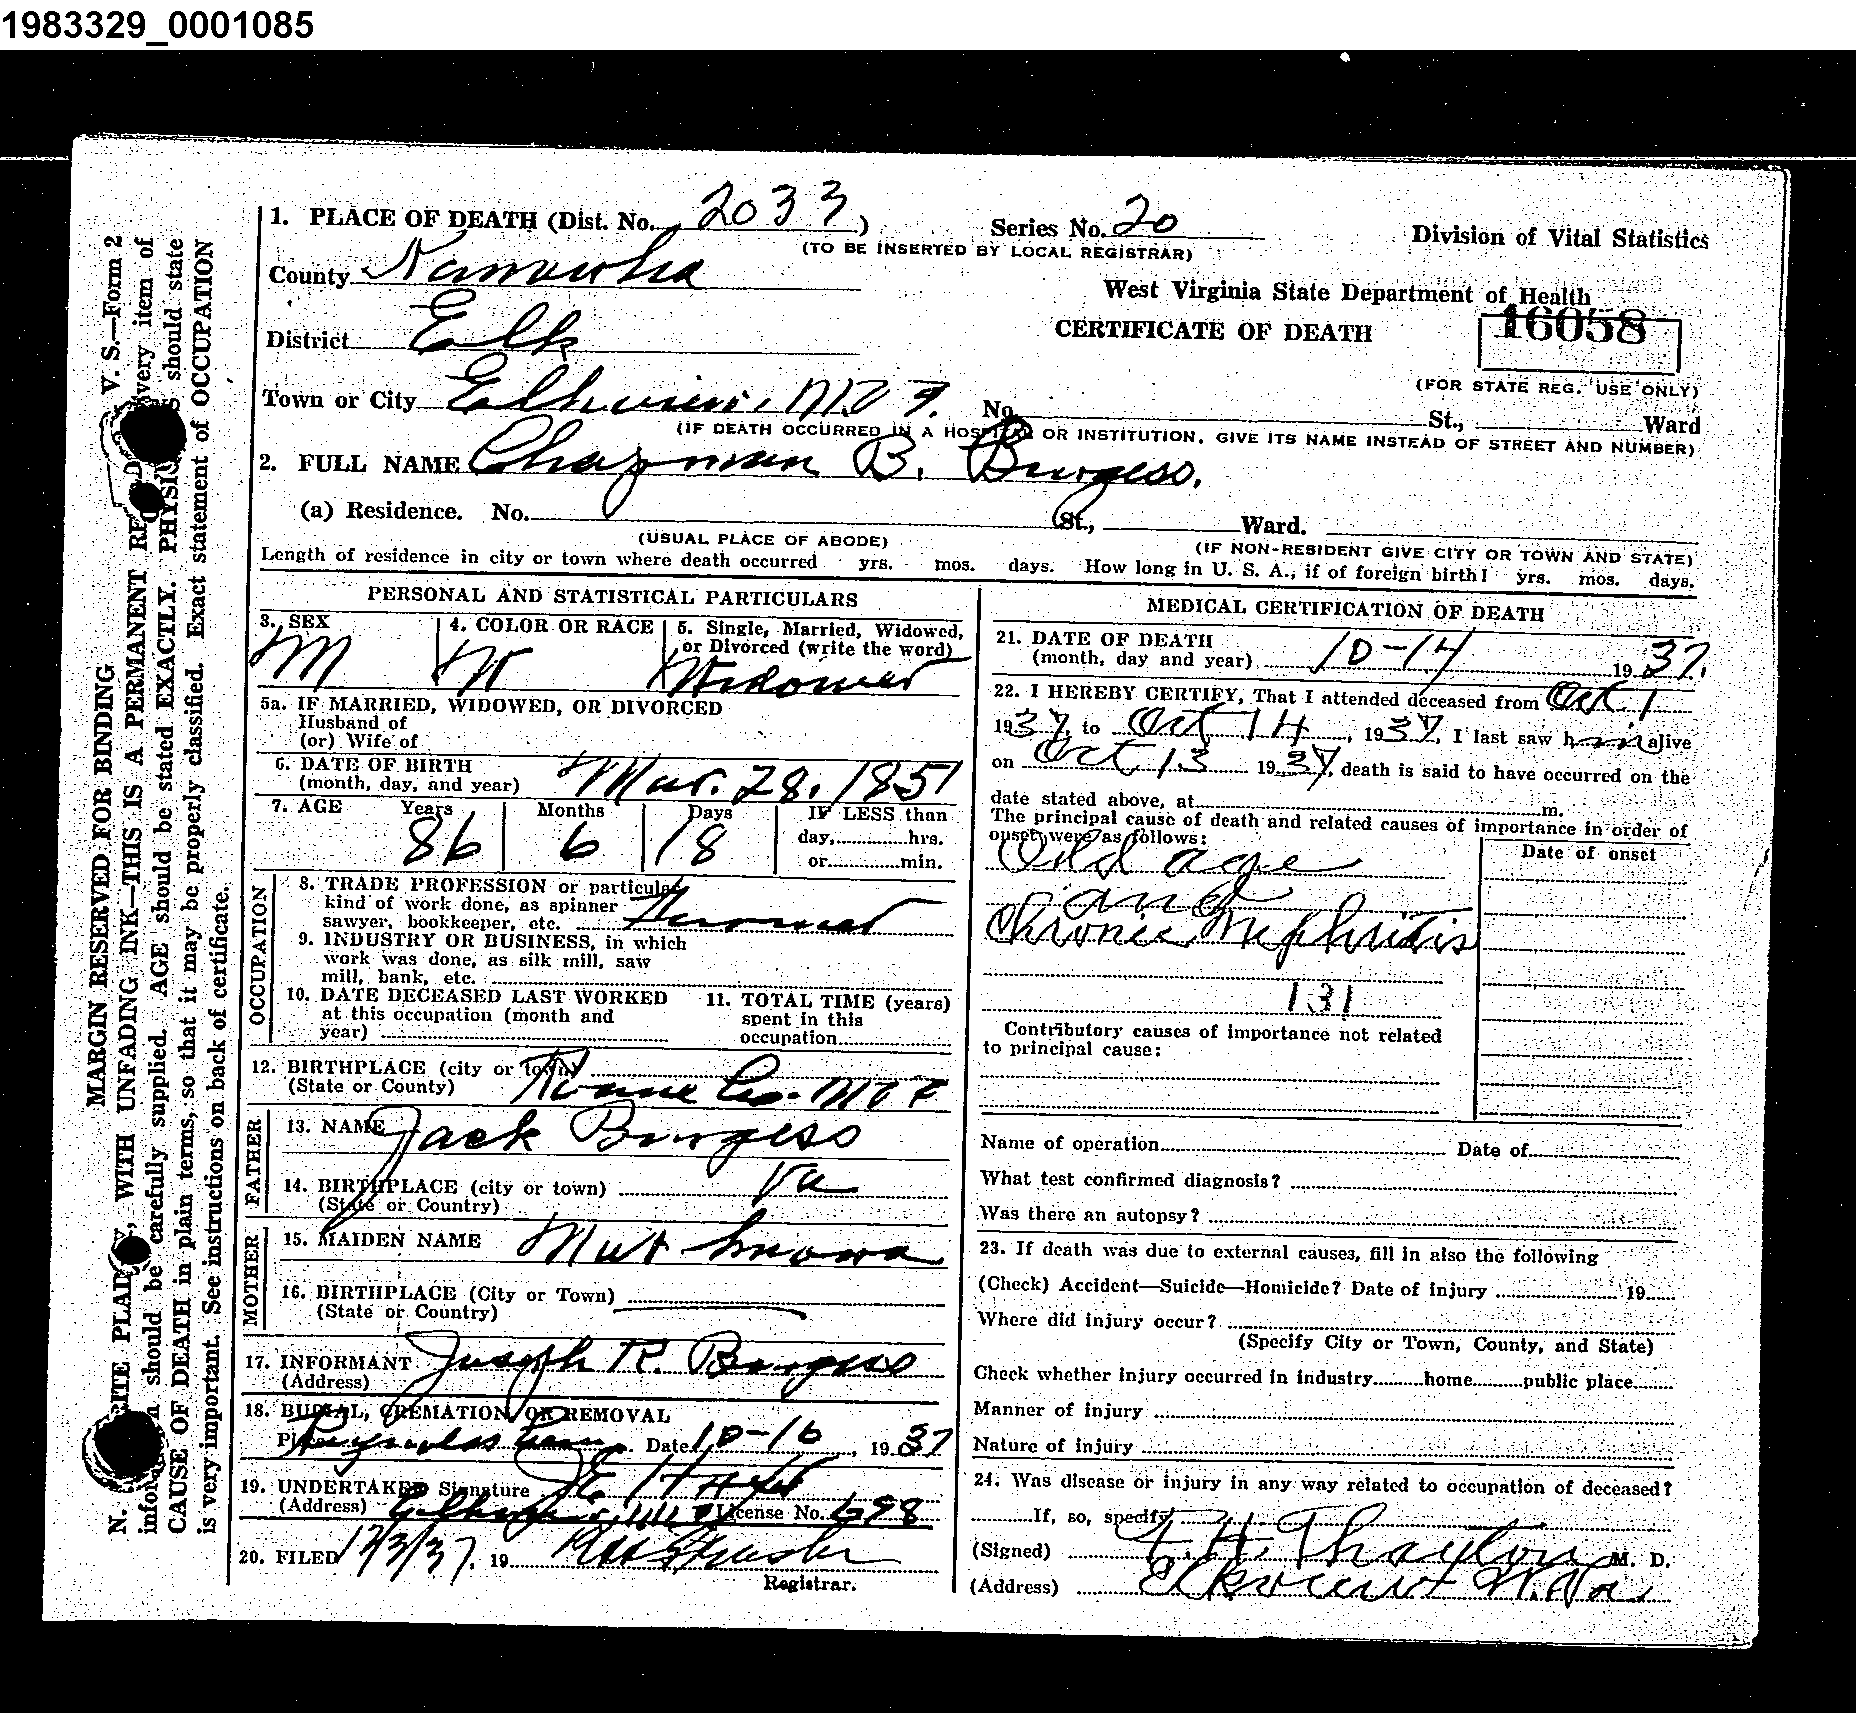 1983329_0001085
1. PLACE OF DEATH (Dist. No. 2033)
Series No. 20
(TO BE INSERTED BY LOCAL REGISTRAR)
Division of Vital Statistics
County Kanawha
West Virginia State Department of Health
CERTIFICATE OF DEATH
16058
(FOR STATE REG. USE ONLY)
District Elk
Town or City Elkview
No. St., Ward
(IF DEATH OCCURRED IN A HOSPITAL OR INSTITUTION, GIVE ITS NAME INSTEAD OF STREET AND NUMBER)
2. FULL NAME Chapman B. Burgess.
(a) Residence. No. St., Ward.
(USUAL PLACE OF ABODE)
(IF NON-RESIDENT GIVE CITY OR TOWN AND STATE)
Length of residence in city or town where death occurred yrs. mos. days. How long in U. S. A., if of foreign birth? yrs. mos. days.
PERSONAL AND STATISTICAL PARTICULARS
3. SEX
M
4. COLOR OR RACE
W
5. Single, Married, Widowed,
or Divorced (write the word)
Widower
5a. IF MARRIED, WIDOWED, OR DIVORCED
Husband of
(or) Wife of
6. DATE OF BIRTH
(month, day, and year) Mar. 28. 1851
7. AGE Years Months Days IF LESS than
86 6 18
day, hrs.
or min.
OCCUPATION
8. TRADE PROFESSION or particular
kind of work done, as spinner
sawyer, bookkeeper, etc. Farmer
9. INDUSTRY OR BUSINESS, in which
work was done, as silk mill, saw
mill, bank, etc.
10. DATE DECEASED LAST WORKED
at this occupation (month and
year)
11. TOTAL TIME (years)
spent in this
occupation
12. BIRTHPLACE (city or town)
(State or County) Roane Co.
FATHER
13. NAME Jack Burgess
14. BIRTHPLACE (city or town) Va
(State or Country)
MOTHER
15. MAIDEN NAME Not known
16. BIRTHPLACE (City or Town)
(State or Country)
17. INFORMANT Joseph R. Burgess
(Address)
18. BURIAL, CREMATION OR REMOVAL
Place Reynolds Cem. Date 10-16, 1937
19. UNDERTAKER Signature
(Address) License No. 698
20. FILED 12/3/37. 19
Registrar.
MEDICAL CERTIFICATION OF DEATH
21. DATE OF DEATH
(month, day and year) 10-14 1937.
22. I HEREBY CERTIFY, That I attended deceased from Oct 1
1937, to Oct 14, 1937, I last saw him alive
on Oct 13 1937, death is said to have occurred on the
date stated above, at m.
The principal cause of death and related causes of importance in order of
onset were as follows:
Date of onset
Old age
and
Chronic Nephritis
131
Contributory causes of importance not related
to principal cause:
Name of operation Date of
What test confirmed diagnosis?
Was there an autopsy?
23. If death was due to external causes, fill in also the following
(Check) Accident—Suicide—Homicide? Date of injury 19
Where did injury occur?
(Specify City or Town, County, and State)
Check whether injury occurred in industry home public place
Manner of injury
Nature of injury
24. Was disease or injury in any way related to occupation of deceased?
If, so, specify
(Signed) Thaxton M. D.
(Address) Elkview W. Va
V. S.—Form 2
MARGIN RESERVED FOR BINDING
N. B.—WRITE PLAINLY, WITH UNFADING INK—THIS IS A PERMANENT RECORD. Every item of
information should be carefully supplied. AGE should be stated EXACTLY. PHYSICIANS should state
CAUSE OF DEATH in plain terms, so that it may be properly classified. Exact statement of OCCUPATION
is very important. See instructions on back of certificate.